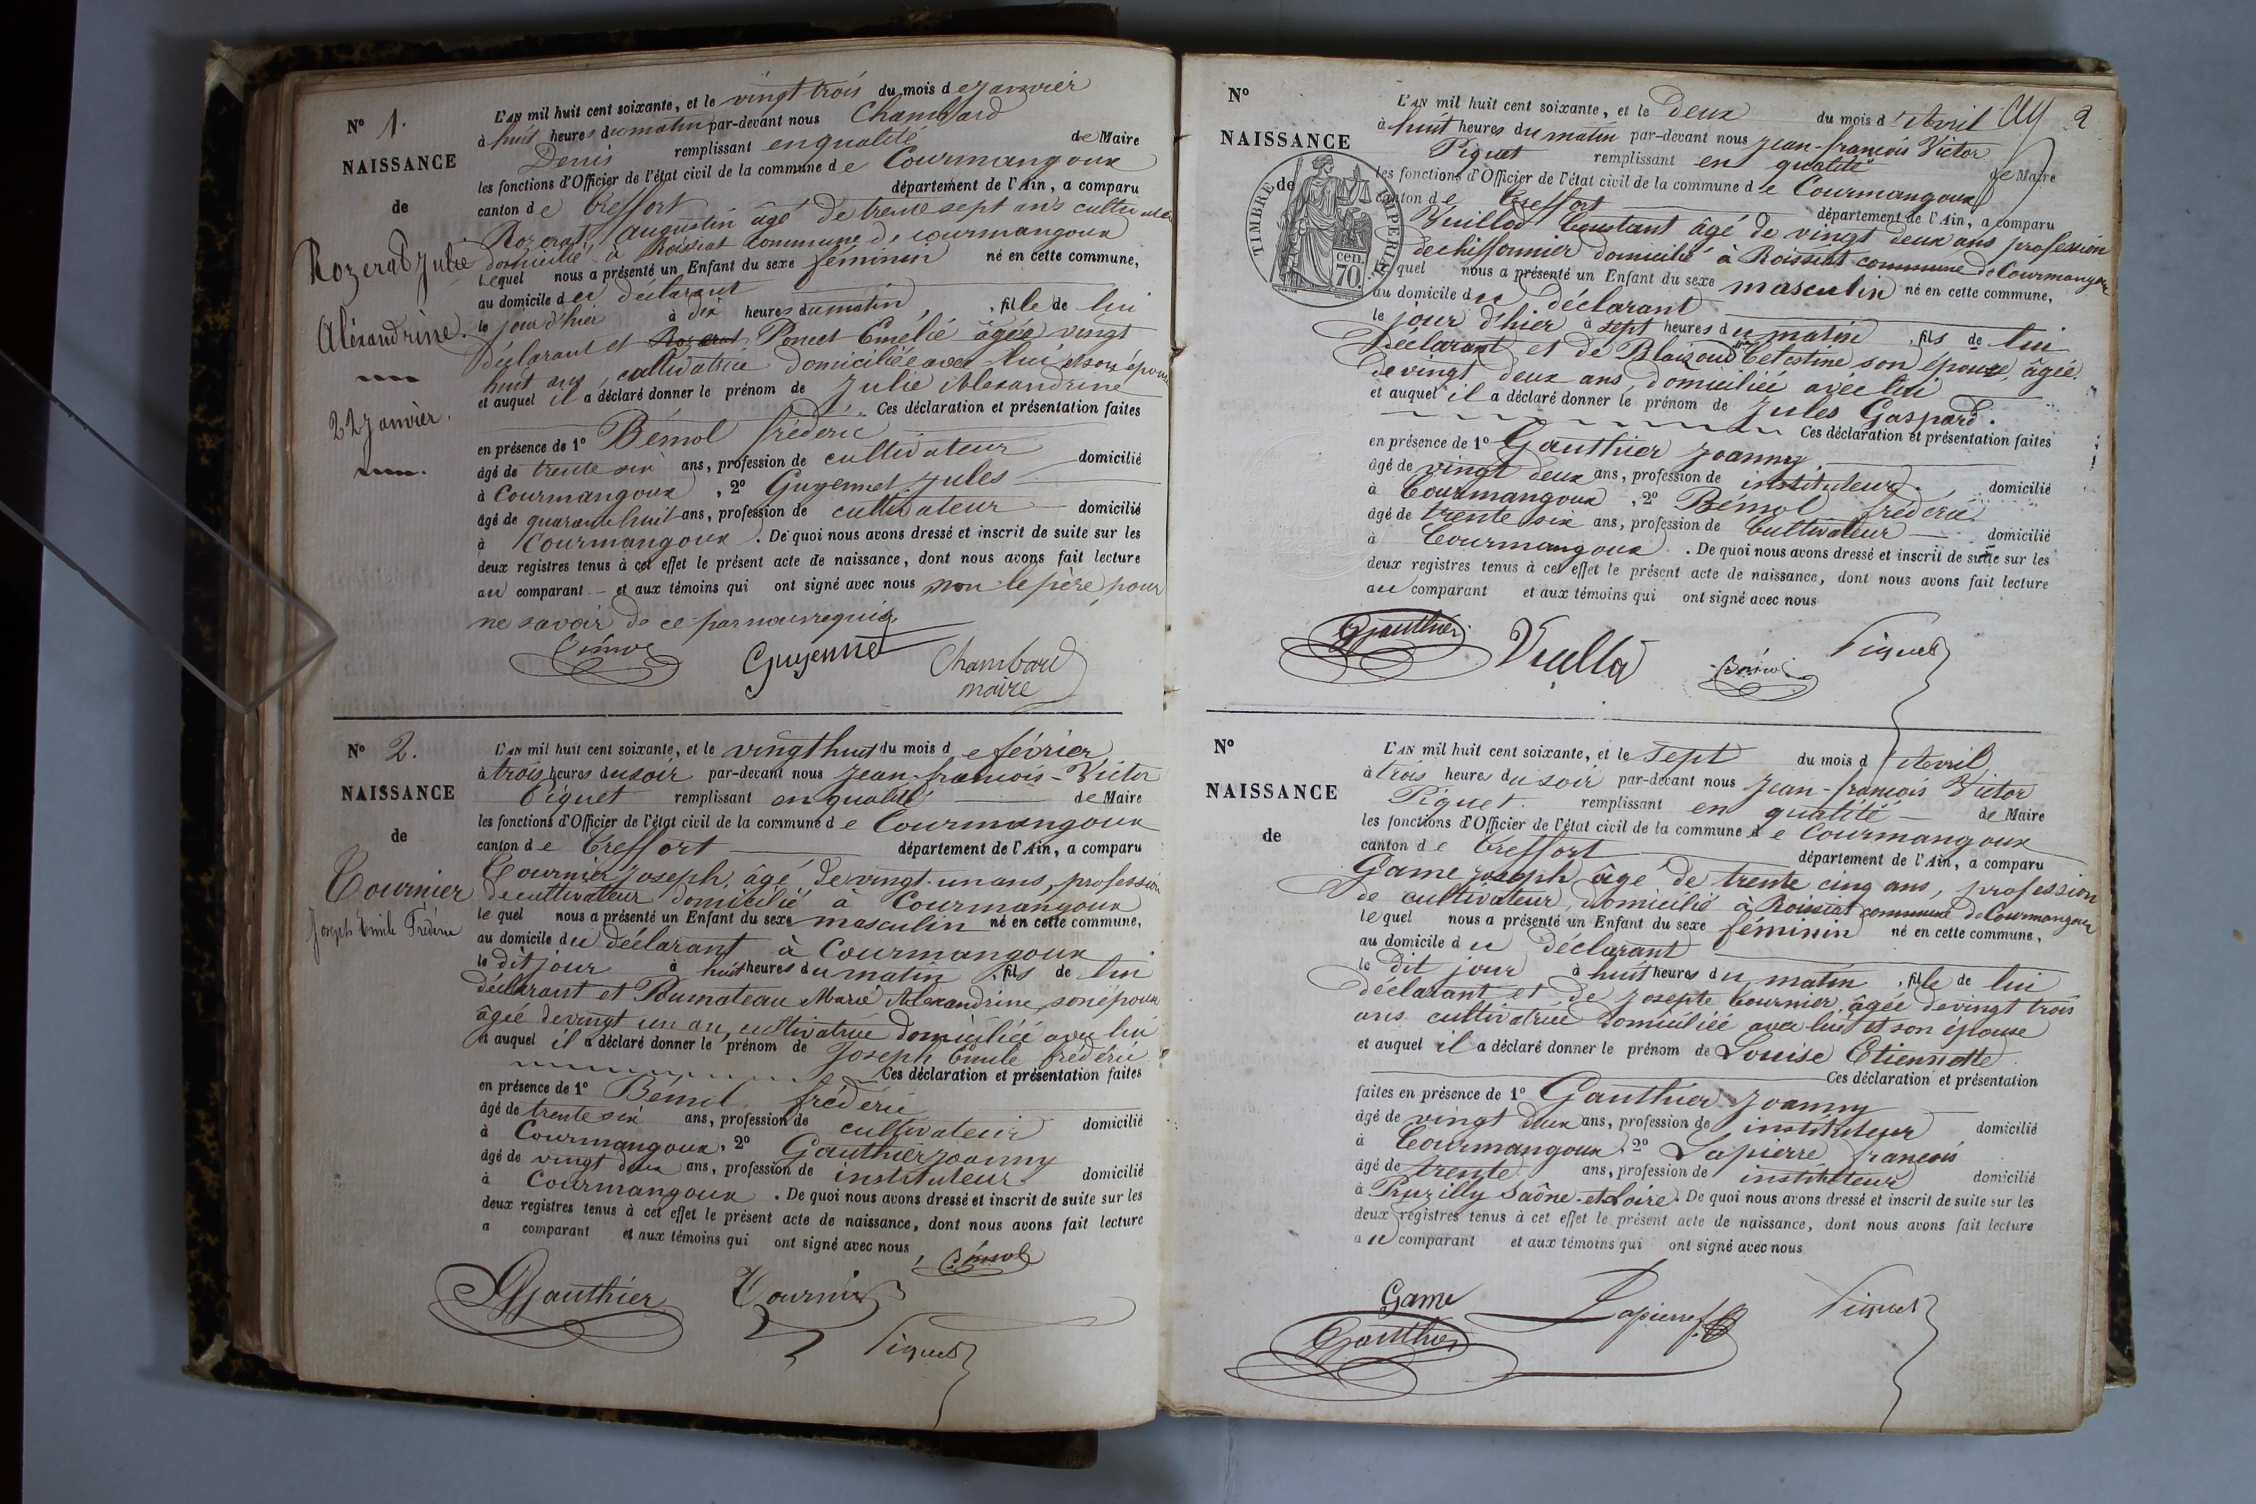 N° 1.
NAISSANCE
de
Rozerat Julie
Aléxandrine.
22 janvier.
L'AN mil huit cent soixante, et le vingt trois du mois de janvier
à huit heures du matin par-devant nous Chambard
Denis remplissant en qualité de Maire
les fonctions d'Officier de l'état civil de la commune de Courmangoux
canton de Treffort département de l'Ain, a comparu
Rozerat Augustin âgé de trente sept ans cultivateur
domicilié à Roissiat commune de courmangoux
lequel nous a présenté un Enfant du sexe féminin né en cette commune,
au domicile du déclarant
le jour d'hier à dix heures du matin, fille de lui
déclarant et Rozerat Poncet Emélie âgée vingt
huit ans, cultivatrice domiciliée avec lui et son épouse
et auquel il a déclaré donner le prénom de Julie Alexandrine
Ces déclaration et présentation faites
en présence de 1° Bémol frédéric
âgé de trente six ans, profession de cultivateur domicilié
à Courmangoux, 2° Guyennet jules
âgé de quarante huit ans, profession de cultivateur domicilié
à Courmangoux. De quoi nous avons dressé et inscrit de suite sur les
deux registres tenus à cet effet le présent acte de naissance, dont nous avons fait lecture
au comparant et aux témoins qui ont signé avec nous non le père pour
ne savoir de ce par nous requis
Bémol Guyennet Chambard
maire
N° 2.
NAISSANCE
de
Tournier
Joseph Emile Frédéric
L'AN mil huit cent soixante, et le vingt huit du mois de février
à trois heures du soir par-devant nous Jean-françois-Victor
Piquet remplissant en qualité de Maire
les fonctions d'Officier de l'état civil de la commune de Courmangoux
canton de Treffort département de l'Ain, a comparu
Tournier Joseph, âgé de vingt-un ans, profession
de cultivateur domicilié à Courmangoux
lequel nous a présenté un Enfant du sexe masculin né en cette commune,
au domicile du déclarant à Courmangoux
le dit jour à huit heures du matin, fils de lui
déclarant et Marie Alexandrine, son épouse
âgée de vingt un an, cultivatrice domiciliée avec lui
et auquel il a déclaré donner le prénom de Joseph Emile frédéric
Ces déclaration et présentation faites
en présence de 1° Bémol frédéric
âgé de trente six ans, profession de cultivateur domicilié
à Courmangoux, 2° Gauthier joanny
âgé de vingt deux ans, profession de instituteur domicilié
à Courmangoux. De quoi nous avons dressé et inscrit de suite sur les
deux registres tenus à cet effet le présent acte de naissance, dont nous avons fait lecture
a comparant et aux témoins qui ont signé avec nous, Bémol
Gauthier Tournier
Piquet
2
N°
NAISSANCE
de
TIMBRE IMPERIAL
70. cen.
L'AN mil huit cent soixante, et le Deux du mois d'Avril
à huit heures du matin par-devant nous Jean-françois Victor
Piquet remplissant en qualité de Maire
les fonctions d'Officier de l'état civil de la commune de Courmangoux
canton de Treffort département de l'Ain, a comparu
Vuillod Constant âgé de vingt deux ans profession
de chiffonnier domicilié à Roissiat commune de Courmangoux
lequel nous a présenté un Enfant du sexe masculin né en cette commune,
au domicile du déclarant
le jour d'hier à sept heures du matin, fils de lui
déclarant et de Blaizoud Celestine son épouse, âgée
de vingt deux ans, domiciliée avec lui
et auquel il a déclaré donner le prénom de Jules Gaspard.
Ces déclaration et présentation faites
en présence de 1° Gauthier joanny
âgé de vingt deux ans, profession de instituteur, domicilié
à Courmangoux, 2° Bémol frédéric
âgé de trente six ans, profession de Cultivateur domicilié
à Courmangoux. De quoi nous avons dressé et inscrit de suite sur les
deux registres tenus à cet effet le présent acte de naissance, dont nous avons fait lecture
au comparant et aux témoins qui ont signé avec nous
Gauthier Vuillod Bémol Piquet
N°
NAISSANCE
de
L'AN mil huit cent soixante, et le Sept du mois d'Avril
à trois heures du soir par-devant nous Jean-françois Victor
Piquet remplissant en qualité de Maire
les fonctions d'Officier de l'état civil de la commune de Courmangoux
canton de Treffort département de l'Ain, a comparu
Game joseph âgé de trente cinq ans, profession
de cultivateur, domicilié à Roissiat commune de Courmangoux
lequel nous a présenté un Enfant du sexe féminin né en cette commune,
au domicile du déclarant
le dit jour à huit heures du matin, fille de lui
déclarant et de Josepte Tournier, âgée de vingt trois
ans cultivatrice domiciliée avec lui et son épouse
et auquel il a déclaré donner le prénom de Louise Etiennette
Ces déclaration et présentation
faites en présence de 1° Gauthier joanny
âgé de vingt deux ans, profession de instituteur domicilié
à Courmangoux 2° Lapierre françois
âgé de trente ans, profession de instituteur domicilié
à Pruzilly Saône-et-Loire. De quoi nous avons dressé et inscrit de suite sur les
deux registres tenus à cet effet le présent acte de naissance, dont nous avons fait lecture
au comparant et aux témoins qui ont signé avec nous
Game Lapierre f. Piquet
Gauthier